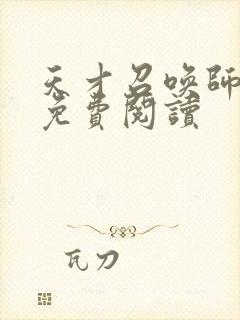 天才召喚師
免費閱讀
瓦刀